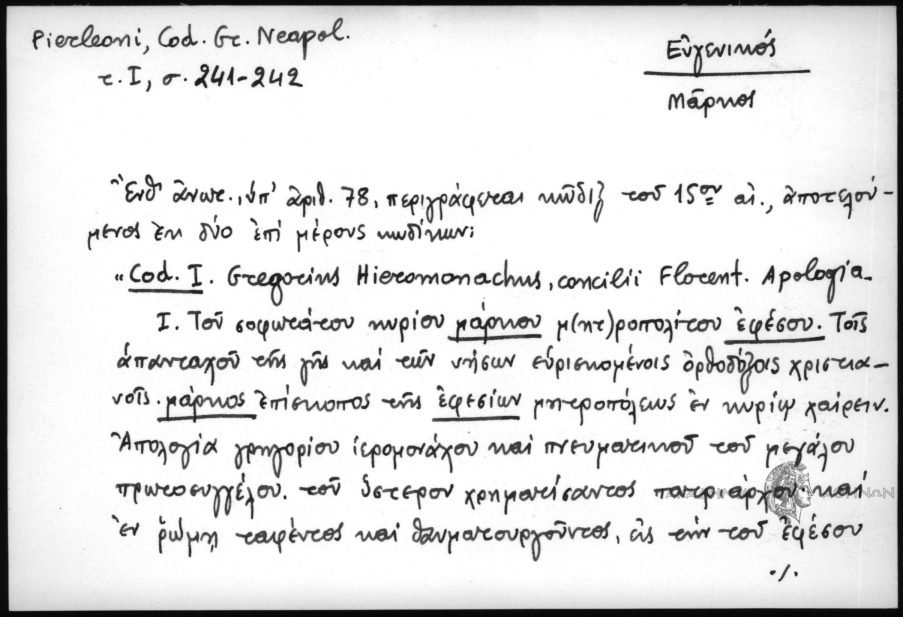 Pierleoni, Cod. Gr. Neapol.
τ. I, σ. 241-242
Εὐγενικός
Μᾶρκος
Ἔνθ' ἄνωτ., ὑπ' ἀριθ. 78, περιγράφεται κῶδιξ τοῦ 15ου αἰ., ἀποτελού-
μενος ἐκ δύο ἐπί μέρους κωδίκων:
"Cod. I. Gregorius Hieromonachus, concilii Florent. Apologia_
I. Τοῦ σοφωτάτου κυρίου μάρκου μ(ητ)ροπολίτου ἐφέσου. Τοῖς
ἁπανταχοῦ τῆς γῆς καί τῶν νήσων εὑρισκομένοις ὀρθοδόξοις χριστια-
νοῖς. μάρκος ἐπίσκοπος τῆς ἐφεσίων μητροπόλεως ἐν κυρίῳ χαίρειν.
Ἀπολογία γρηγορίου ἱερομονάχου καί πνευματικοῦ τοῦ μεγάλου
πρωτοσυγγέλου. τοῦ ὕστερον χρηματίσαντος πατριάρχου· καί
ἐν ῥώμῃ ταφέντος καί θαυματουργοῦντος, εἰς τήν τοῦ ἐφέσου
./.